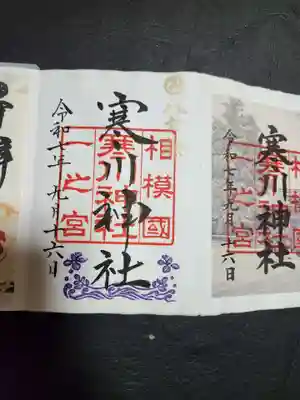 相模國
寒川神社
一之宮
寒川神社
令和七年九月十六日
相模國
寒川神社
一之宮
寒川神社
令和七年九月十六日